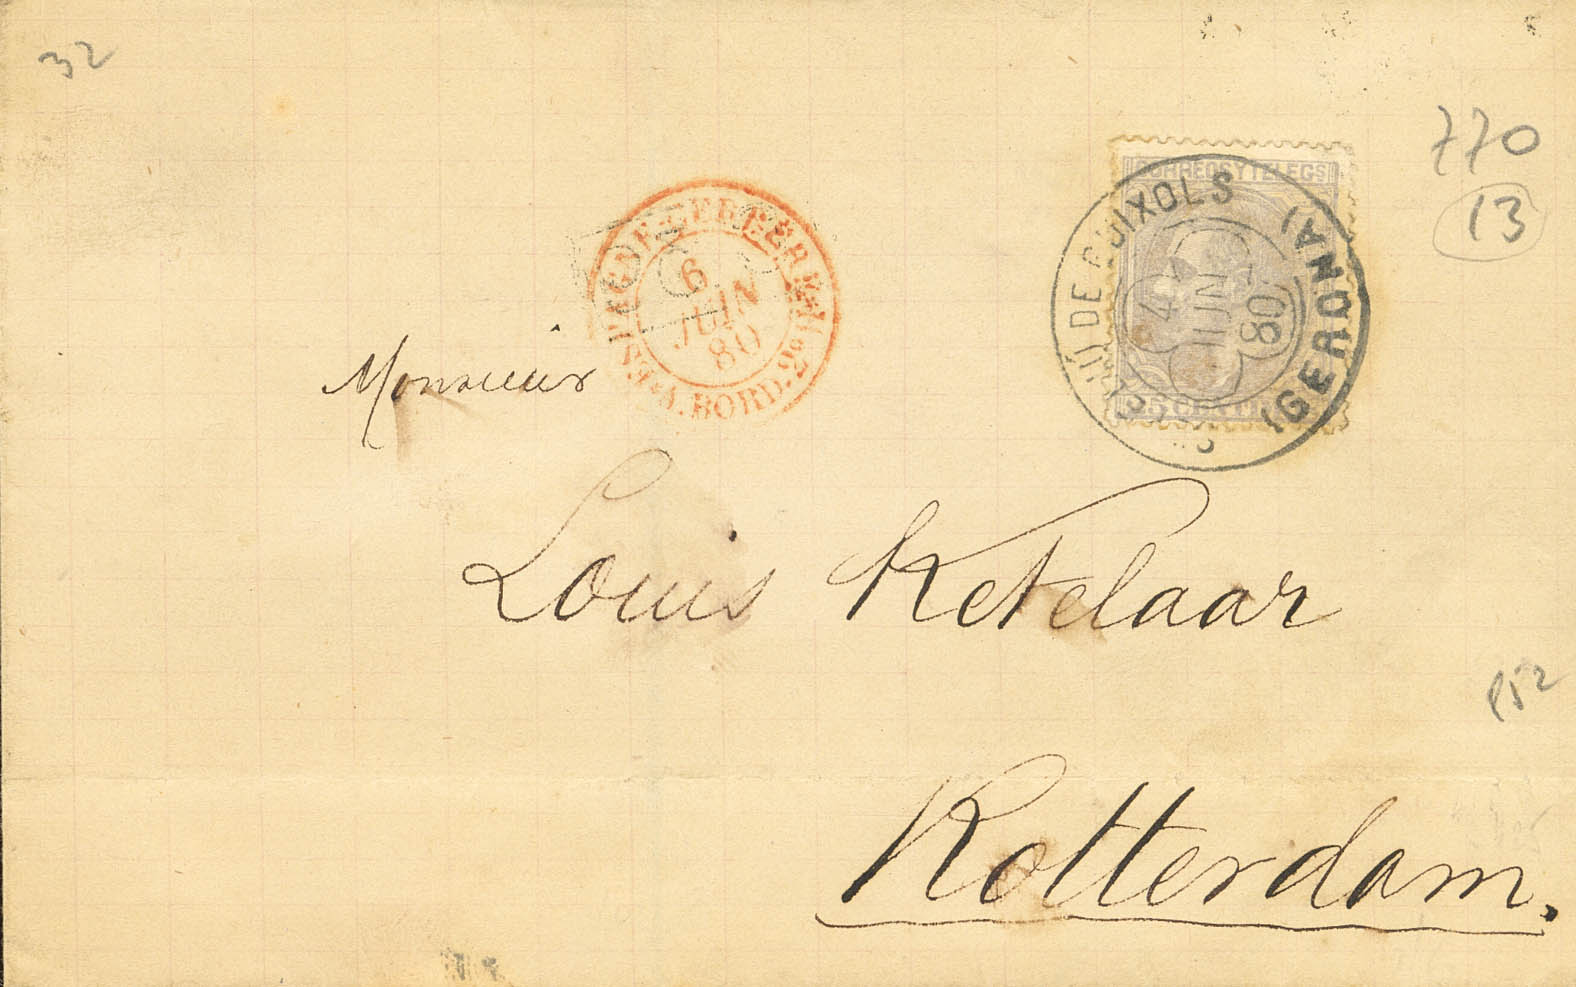 32
770
13
CORREOS Y TELEGS
DE GUIXOLS (GERONA)
4 JUN 80
6
JUIN
80
BORD. 2º
Monsieur
Louis Ketelaar
Rotterdam.